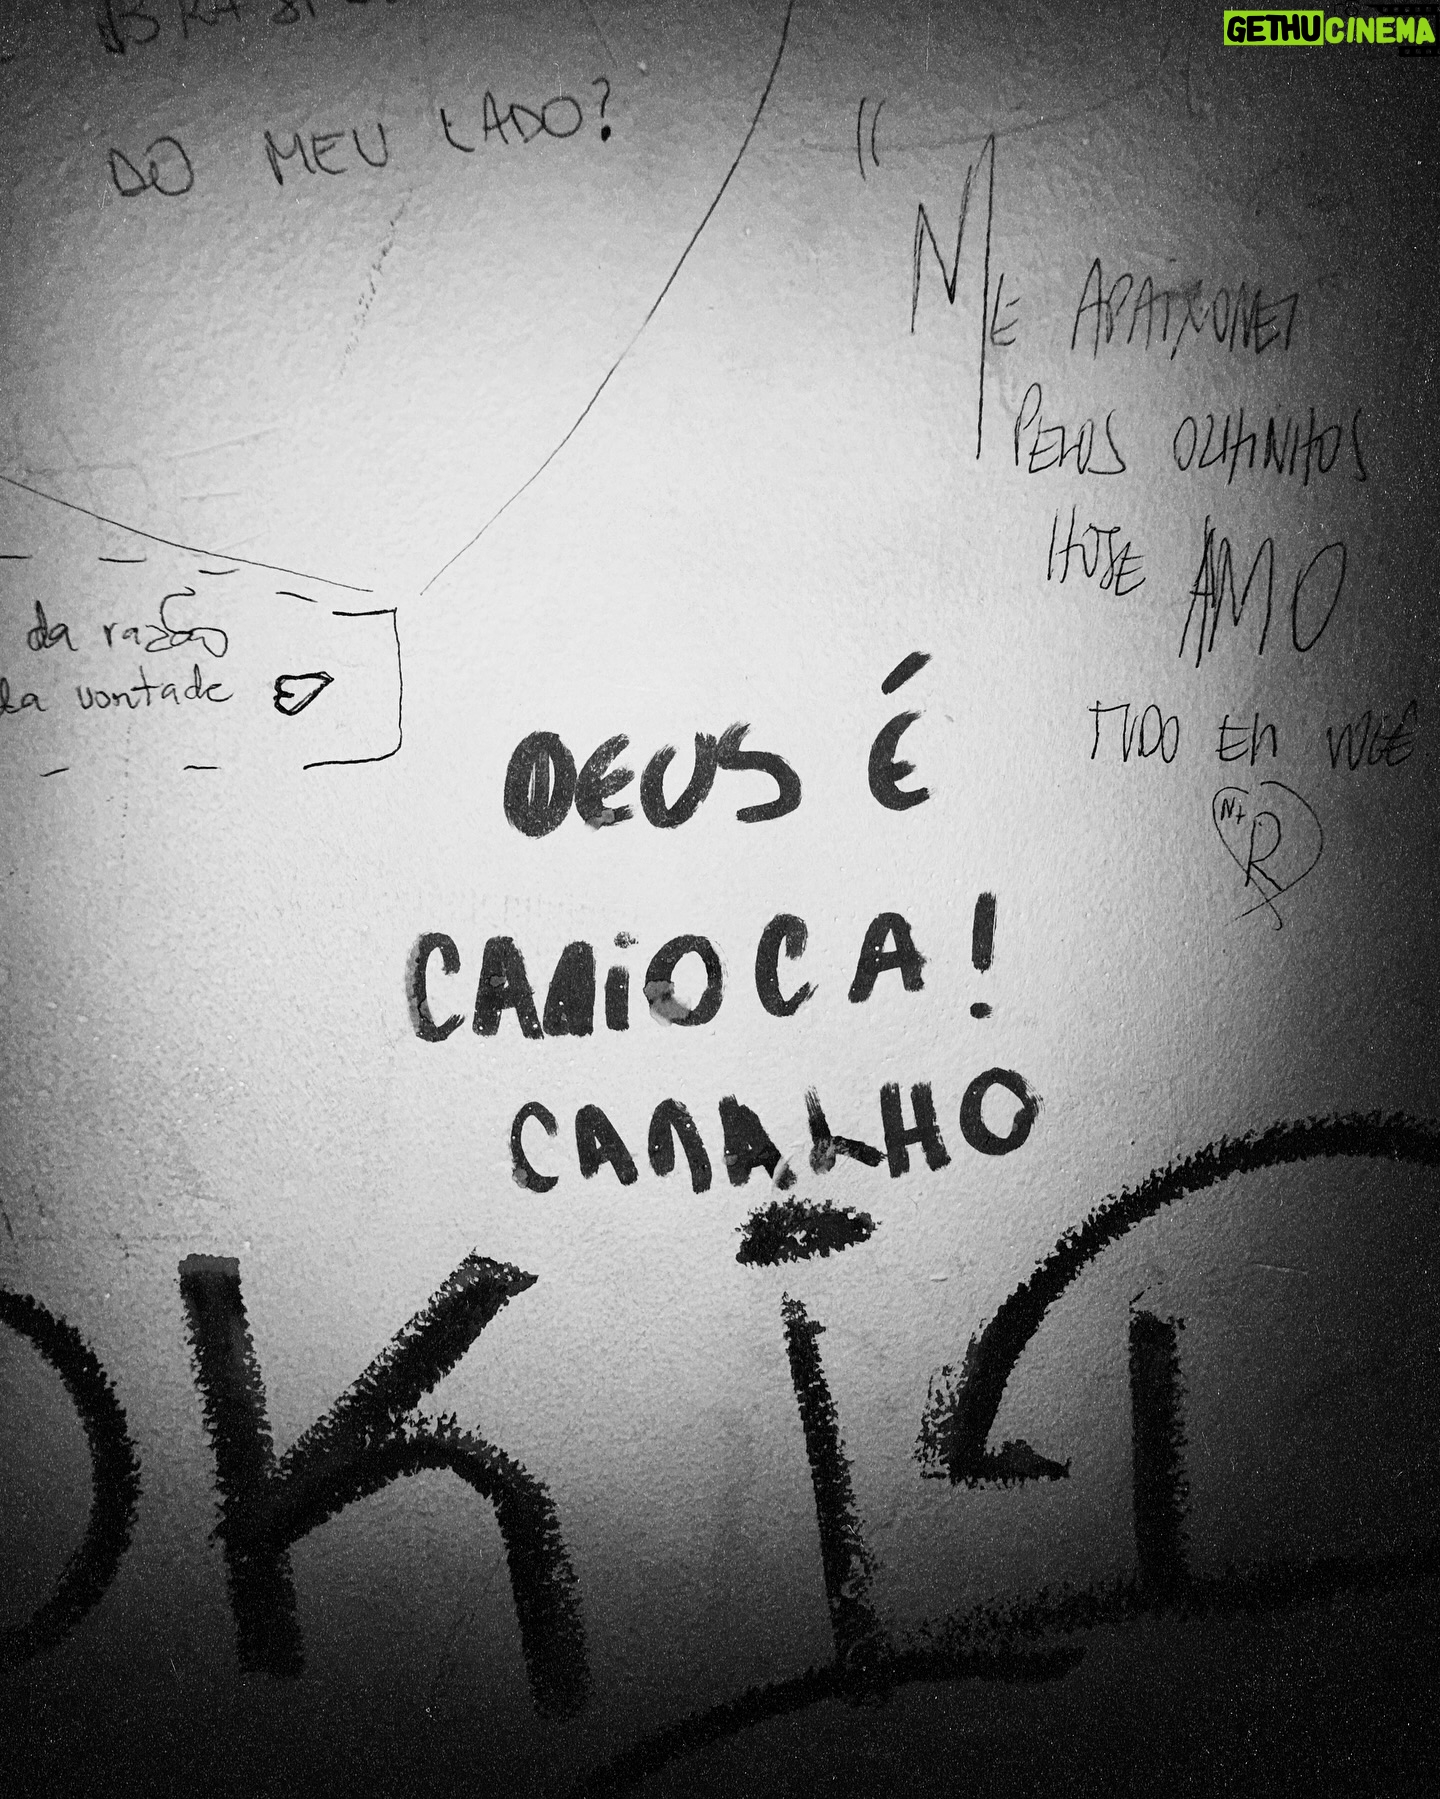 GETHUCINEMA
DO MEU LADO?
"
ME APAIXONEI
PELOS OLHINHOS
HOJE AMO
TUDO EM VOCÊ
N+
R
da razão
da vontade
DEUS É
CARIOCA!
CARALHO